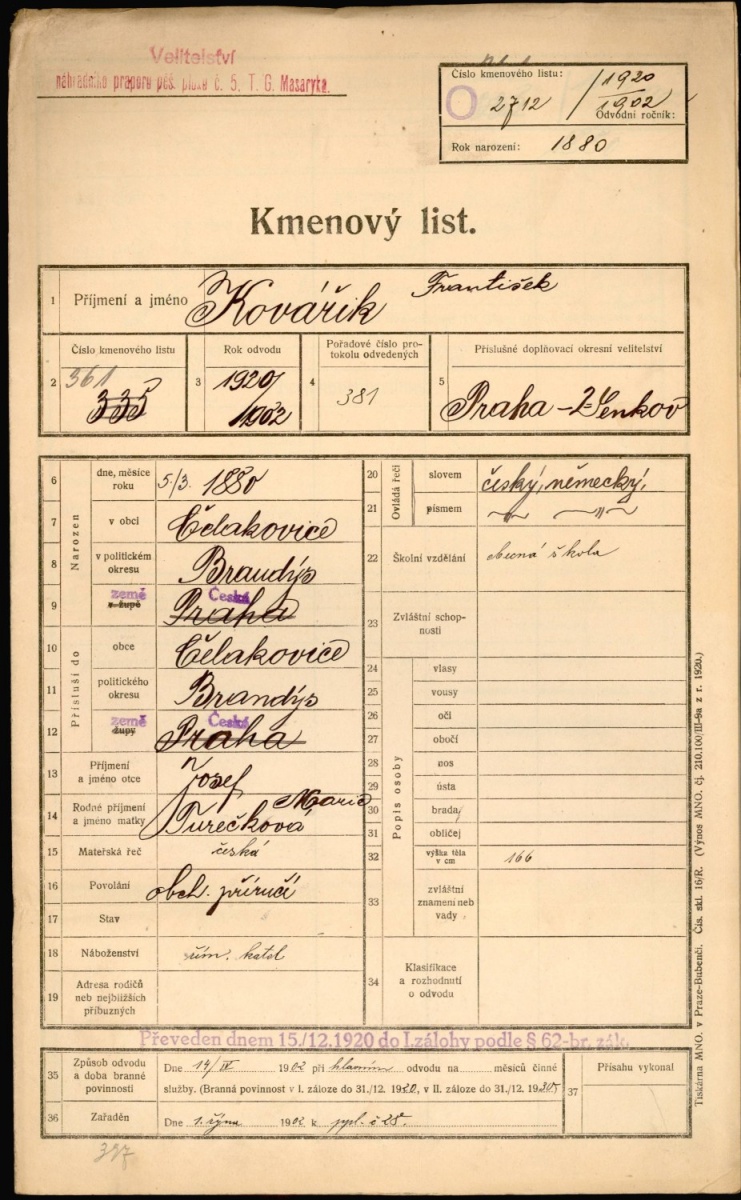 Velitelství
náhradního praporu pěš. pluku č. 5, T. G. Masaryka.
Číslo kmenového listu:
2712 / 1920
1902
Odvodní ročník:
Rok narození: 1880
Kmenový list.
1 Příjmení a jméno Kovářík František
2 Číslo kmenového listu 361 335
3 Rok odvodu 1920/1902
4 Pořadové číslo protokolu odvedených 381
5 Příslušné doplňovací okresní velitelství Praha
Narozen
6 dne, měsíce roku 5/3. 1880
7 v obci Čelakovice
8 v politickém okresu Brandýs
9 země v župě Česká Praha
Přísluší do
10 obce Čelakovice
11 politického okresu Brandýs
12 země župy Česká Praha
13 Příjmení a jméno otce Josef
14 Rodné příjmení a jméno matky Marie Turečková
15 Mateřská řeč česká
16 Povolání obch. příručí
17 Stav
18 Náboženství řím. katol
19 Adresa rodičů neb nejbližších příbuzných
Ovládá řeči
20 slovem český, německý,
21 písmem
22 Školní vzdělání obecná škola
23 Zvláštní schopnosti
Popis osoby
24 vlasy
25 vousy
26 oči
27 obočí
28 nos
29 ústa
30 brada
31 obličej
32 výška těla v cm 166
33 zvláštní znamení neb vady
34 Klasifikace a rozhodnutí o odvodu
Převeden dnem 15./12.1920 do I.zálohy podle § 62-br. zák.
35 Způsob odvodu a doba branné povinnosti
Dne 14/IV 1902 při hlavním odvodu na měsíců činné
služby. (Branná povinnost v I. záloze do 31./12. 1920, v II. záloze do 31./12. 1930)
36 Zařaděn Dne 1. října 1902 k ppl. č 28.
37 Přísahu vykonal
Tiskárna MNO. v Praze-Bubenči. Čís. skl. 16/R. (Výnos MNO. čj. 210.100/III-8a z r. 1920.)